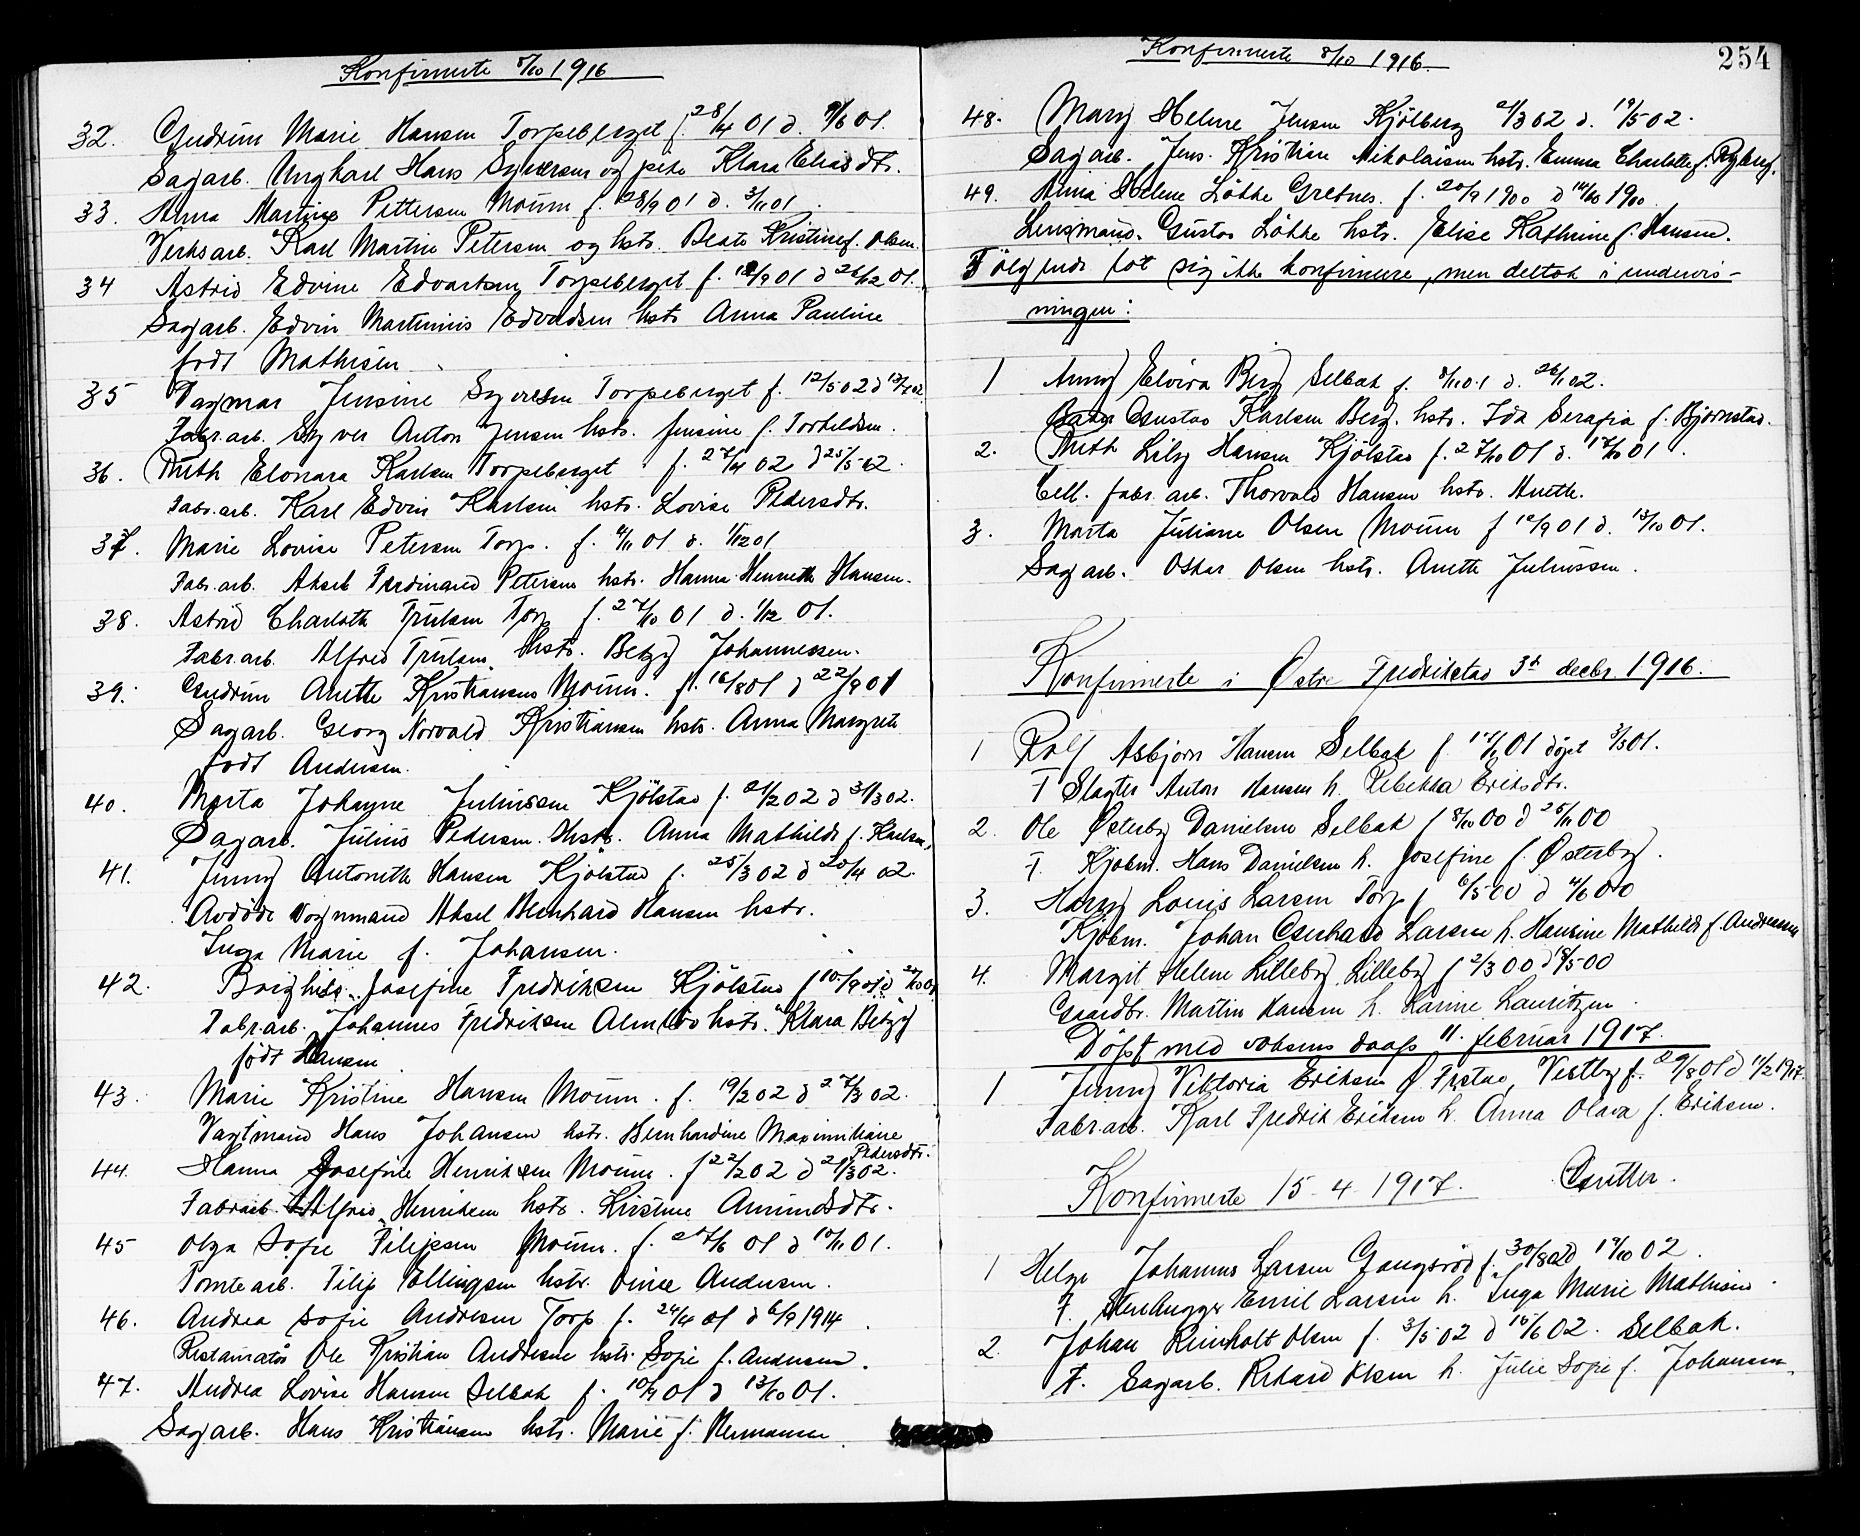 Konfirmerte 8/10 1916
32. Gudrun Marie Hansen Torpeberget f. 28/4 01 d. 9/6 01.
Sagarb. Ungkarl Hans Syversen og pike Klara Eliasdtr.
33. Anna Martine Pettersen Moum f. 28/9 01 d. 3/11 01.
Verksarb. Karl Martin Petersen og hstr. Beate Kristine f. Olsen.
34 Astrid Edvine Edvartsen Torpeberget f. 12/9 01 d 26/12 01.
Sagarb. Edvin Martinius Edvardsen hstr Anna Pauline
født Mathisen
35 Dagmar Jensine Syversen Torpeberget f. 12/5 02 d 13/7 02
Fabr.arb. Syver Anton Jensen hstr. Jensine f. Torkeldsen.
36. Ruth Elonara Karlsen Torpeberget f. 27/4 02 d 25/5 02.
Fabr.arb. Karl Edvin Karlsen hstr. Lovise Pedersdtr.
37. Marie Lovise Petersen Torp. f. 4/11 01 d. 1/12 01
Fabr.arb. Aksel Ferdinand Petersen hstr. Hanna Henrette Hansen.
38. Astrid Charlotte Trulsen Torp f. 27/10 01 d. 1/12 01.
Fabr.arb. Alfred Trulsen hstr. Betzy Johannessen.
39. Gudrun Anette Kristiansen Moum. f. 16/8 01 d 22/9 01
Sagarb. Georg Norvald Kristiansen hstr. Anna Margrete
født Andersen.
40. Marta Johanne Juliussen Kjölstad f. 21/2 02 d 31/3 02.
Sagarb. Julius Pedersen hstr. Anna Mathilde f. Karlsen,
41. Jenny Antonette Hansen Kjölstad f. 25/3 02 d 20/4 02.
Avdöde Vognmand Aksel Bernhard Hansen hstr.
Inga Marie f. Johansen.
42. Borghild Josefine Fredriksen Kjölstad f 10/9 01 d 27/10 01
Fabr.arb. Johannes Fredriksen hstr. Klara Betzy
født Hansen
43. Marie Kristine Hansen Moum. f. 19/2 02 d 27/3 02.
Vagtmand Hans Johansen hstr. Bernhardine Maximiliane
Pedersdtr.
44. Hanna Josefine Henriksen Moum. f 22/2 02 d 21/3 02.
Fabrarb. Alfred Henriksen hstr. Kristine Amundsdtr.
45 Olga Sofie Filipsen Moum. f. 27/6 01 d 10/11 01.
Tomtearb. Filip Ellingsen hstr. Andersen.
46. Andrea Sofie Andresen Torp. f. 24/4 01 d 6/9 1914
Restauratör Ole Kristian Andresen hstr. Sofie f. Andersen.
47. Andrea Lovise Hansen Selbak f. 10/9 01 d 13/10 01.
Sagarb. Hans Kristiansen hstr. Marie f. Hermansen
Konfirmerte 8/10 1916.
254
48. Mary Helene Jensen Kjölberg 21/3 02 d. 19/5 02.
Sagarb. Jens Kristian Nikolaisen hstr. Emma Charlotte f. Ryberg.
49. Anna Helene Lökke Gretnes. f. 20/9 1900 d 14/10 1900.
Lensmand. Gustav Lökke hstr. Elise Kathrine f. Hansen.
Fölgende lot sig ikke konfirmere, men deltok i undervis-
ningen:
1 Anny Elvira Berg Selbak f. 8/11 01 d. 26/1 02.
Gustav Karlsen Berg. hstr. Ida Serafia f. Björnstad.
2. Ruth Lilly Hansen Kjölstad f. 27/10 01 d. 17/10 01.
Cell. fabr. arb. Thorvald Hansen hstr. Anette.
3. Marta Juliane Olsen Moum f 12/9 01 d. 13/10 01.
Sagarb. Oskar Olsen hstr. Anette Juliussen.
Konfirmerte i Østre Fredrikstad 3dt decbr. 1916.
1 Rolf Asbjørn Hansen Selbak f. 17/1 01 döpt 3/3 01.
F Slagter Anton Hansen h. Rebekka Eriksdtr.
2. Ole Østerby Danielsen Selbak f 8/10 00 d 25/11 00
F. Kjøbm. Hans Danielsen h. Josefine f. Østerby.
3. Harry Louis Larsen Torp f 6/5 00 d 4/6 00
Kjöbm. Johan Gerhard Larsen h. Hansine Mathilde f. Andreassen
4. Margit Helene Lilleby, Lilleby f 2/3 00 d 18/5 00
Gaardbr. Martin Hansen h. Karine Lauritzen.
Döpt med voksens daap 11. februar 1917.
1 Jenny Viktoria Eriksen Ø Frstad, Vestby f. 29/8 01 d 11/2 1917.
Fabr.arb. Karl Fredrik Eriksen h. Anna Olava f. Eriksen.
Konfirmerte 15-4 1917. Gutter.
1 Helge Johannes Larsen Gangsröd f. 30/8 02 d 17/10 02.
F. Stenhugger Emil Larsen h. Inga Marie Mathisen.
2. Johan Reinholt Olsen f. 3/5 02 d 15/6 02. Selbak.
F. Sagarb. Rikard Olsen h. Julie Sofie f. Johansen.